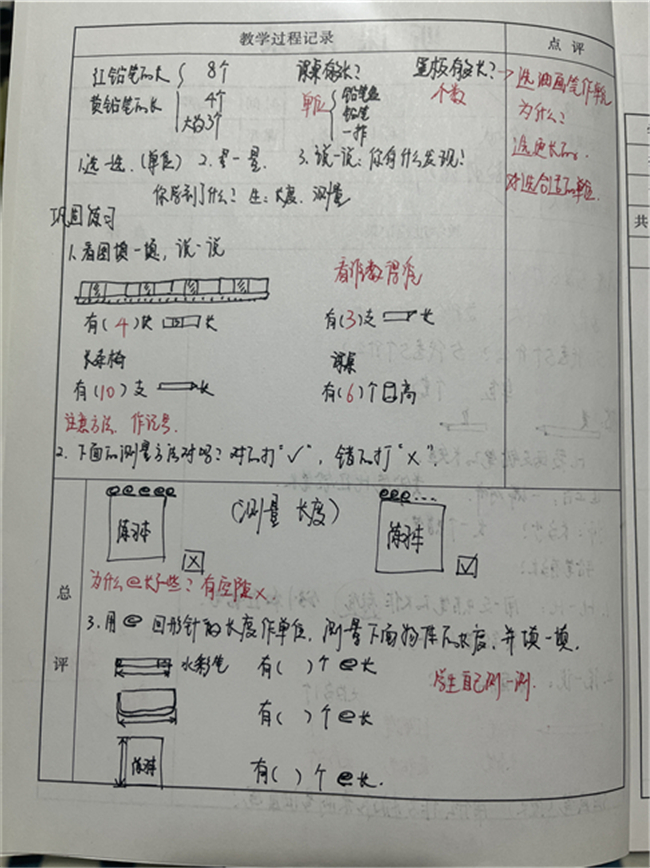 教学过程记录
点评
红铅笔的长 8个 课桌有多长? 黑板有多长?→选油画笔作单位
黄铅笔的长 4个 单位 铅笔盒 个数 为什么?
大约3个 铅笔
一拃 选更长的。
1.选一选.(单位) 2.量一量. 3.说一说:你有什么发现?
你学到了什么?生:长度、测量
对选合适的单位.
共
巩固练习
1.看图填一填,说一说
看准数得准
有(4)块 长 有(3)支 长
长条椅 课桌
有(10)支 长 有(6)个 高
注意方法.作记号.
2.下面的测量方法对吗?对的打“√”,错的打“×”.
(测量 长度)
练习本 × 练习本 √
总评
为什么 长一些?有空隙×
3.用 回形针的长度作单位,测量下面物体的长度,并填一填.
水彩笔 有( )个 长
学生自己测一测.
有( )个 长
练习本 有( )个 长.